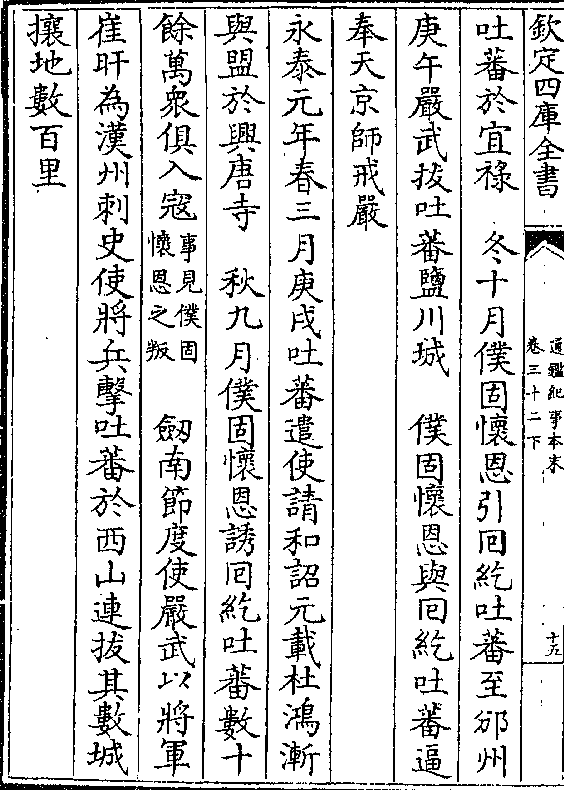 欽定四庫全書
通鑑紀事本末
卷三十二下
十五
吐蕃於宜祿　冬十月僕固懷恩引囘紇吐蕃至邠州
庚午嚴武拔吐蕃鹽川城　僕固懷恩與囘紇吐蕃逼
奉天京師戒嚴
永泰元年春三月庚戌吐蕃遣使請和詔元載杜鴻漸
與盟於興唐寺　秋九月僕固懷恩誘囘紇吐蕃數十
餘萬衆俱入寇事見僕固懷恩之叛　劔南節度使嚴武以將軍
崔旰為漢州刺史使將兵擊吐蕃於西山連拔其數城
攘地數百里